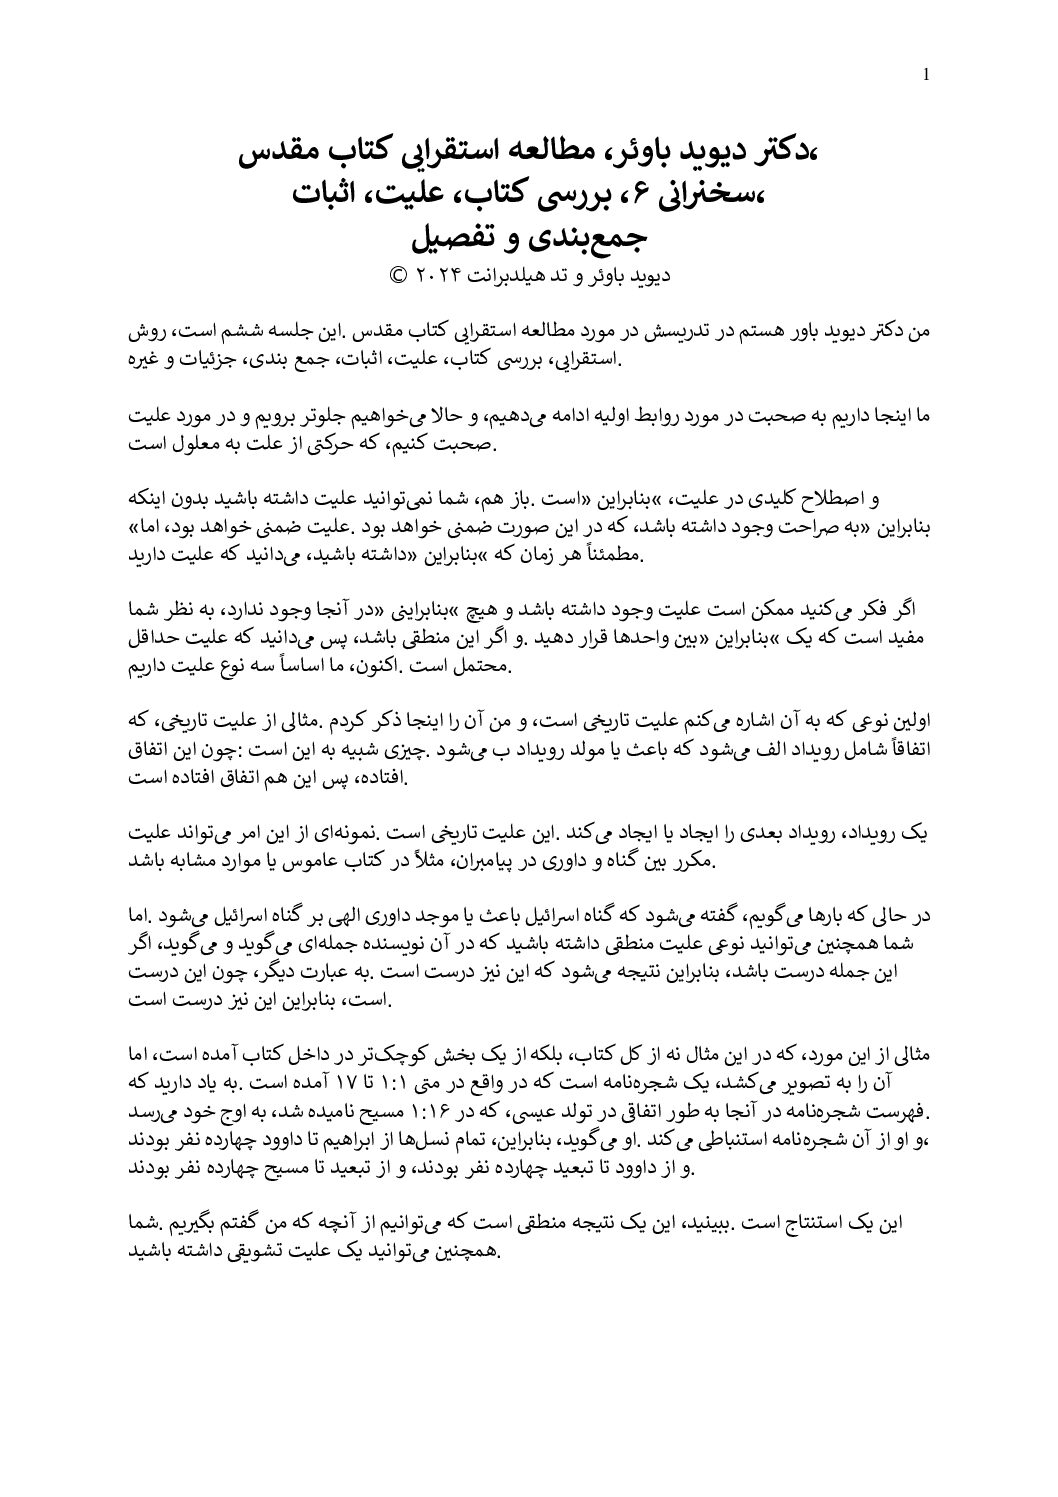 1
دکتر دیوید باوئر، مطالعه استقرایی کتاب مقدس،
سخنرانی ۶، بررسی کتاب، علیت، اثبات،
جمع‌بندی و تفصیل
دیوید باوئر و تد هیلدبرانت ۲۰۲۴ ©
من دکتر دیوید باور هستم در تدریسش در مورد مطالعه استقرایی کتاب مقدس .این جلسه ششم است، روش
استقرایی، بررسی کتاب، علیت، اثبات، جمع بندی، جزئیات و غیره.
ما اینجا داریم به صحبت در مورد روابط اولیه ادامه می‌دهیم، و حالا می‌خواهیم جلوتر برویم و در مورد علیت
صحبت کنیم، که حرکتی از علت به معلول است.
و اصطلاح کلیدی در علیت، «بنابراین »است .باز هم، شما نمی‌توانید علیت داشته باشید بدون اینکه
بنابراین »به صراحت وجود داشته باشد، که در این صورت ضمنی خواهد بود .علیت ضمنی خواهد بود، اما«
مطمئناً هر زمان که «بنابراین »داشته باشید، می‌دانید که علیت دارید.
اگر فکر می‌کنید ممکن است علیت وجود داشته باشد و هیچ «بنابراینی »در آنجا وجود ندارد، به نظر شما
مفید است که یک «بنابراین »بین واحدها قرار دهید .و اگر این منطقی باشد، پس می‌دانید که علیت حداقل
محتمل است .اکنون، ما اساساً سه نوع علیت داریم.
اولین نوعی که به آن اشاره می‌کنم علیت تاریخی است، و من آن را اینجا ذکر کردم .مثالی از علیت تاریخی، که
اتفاقاً شامل رویداد الف می‌شود که باعث یا مولد رویداد ب می‌شود .چیزی شبیه به این است :چون این اتفاق
افتاده، پس این هم اتفاق افتاده است.
یک رویداد، رویداد بعدی را ایجاد یا ایجاد می‌کند .این علیت تاریخی است .نمونه‌ای از این امر می‌تواند علیت
مکرر بین گناه و داوری در پیامبران، مثلاً در کتاب عاموس یا موارد مشابه باشد.
در حالی که بارها می‌گویم، گفته می‌شود که گناه اسرائیل باعث یا موجد داوری الهی بر گناه اسرائیل می‌شود .اما
شما همچنین می‌توانید نوعی علیت منطقی داشته باشید که در آن نویسنده جمله‌ای می‌گوید و می‌گوید، اگر
این جمله درست باشد، بنابراین نتیجه می‌شود که این نیز درست است .به عبارت دیگر، چون این درست
است، بنابراین این نیز درست است.
مثالی از این مورد، که در این مثال نه از کل کتاب، بلکه از یک بخش کوچک‌تر در داخل کتاب آمده است، اما
آن را به تصویر می‌کشد، یک شجره‌نامه است که در واقع در متی ۱:۱ تا ۱۷ آمده است .به یاد دارید که
فهرست شجره‌نامه در آنجا به طور اتفاقی در تولد عیسی، که در ۱:۱۶ مسیح نامیده شد، به اوج خود می‌رسد.
و او از آن شجره‌نامه استنباطی می‌کند .او می‌گوید، بنابراین، تمام نسل‌ها از ابراهیم تا داوود چهارده نفر بودند،
و از داوود تا تبعید چهارده نفر بودند، و از تبعید تا مسیح چهارده نفر بودند.
این یک استنتاج است .ببینید، این یک نتیجه منطقی است که می‌توانیم از آنچه که من گفتم بگیریم .شما
همچنین می‌توانید یک علیت تشویقی داشته باشید.